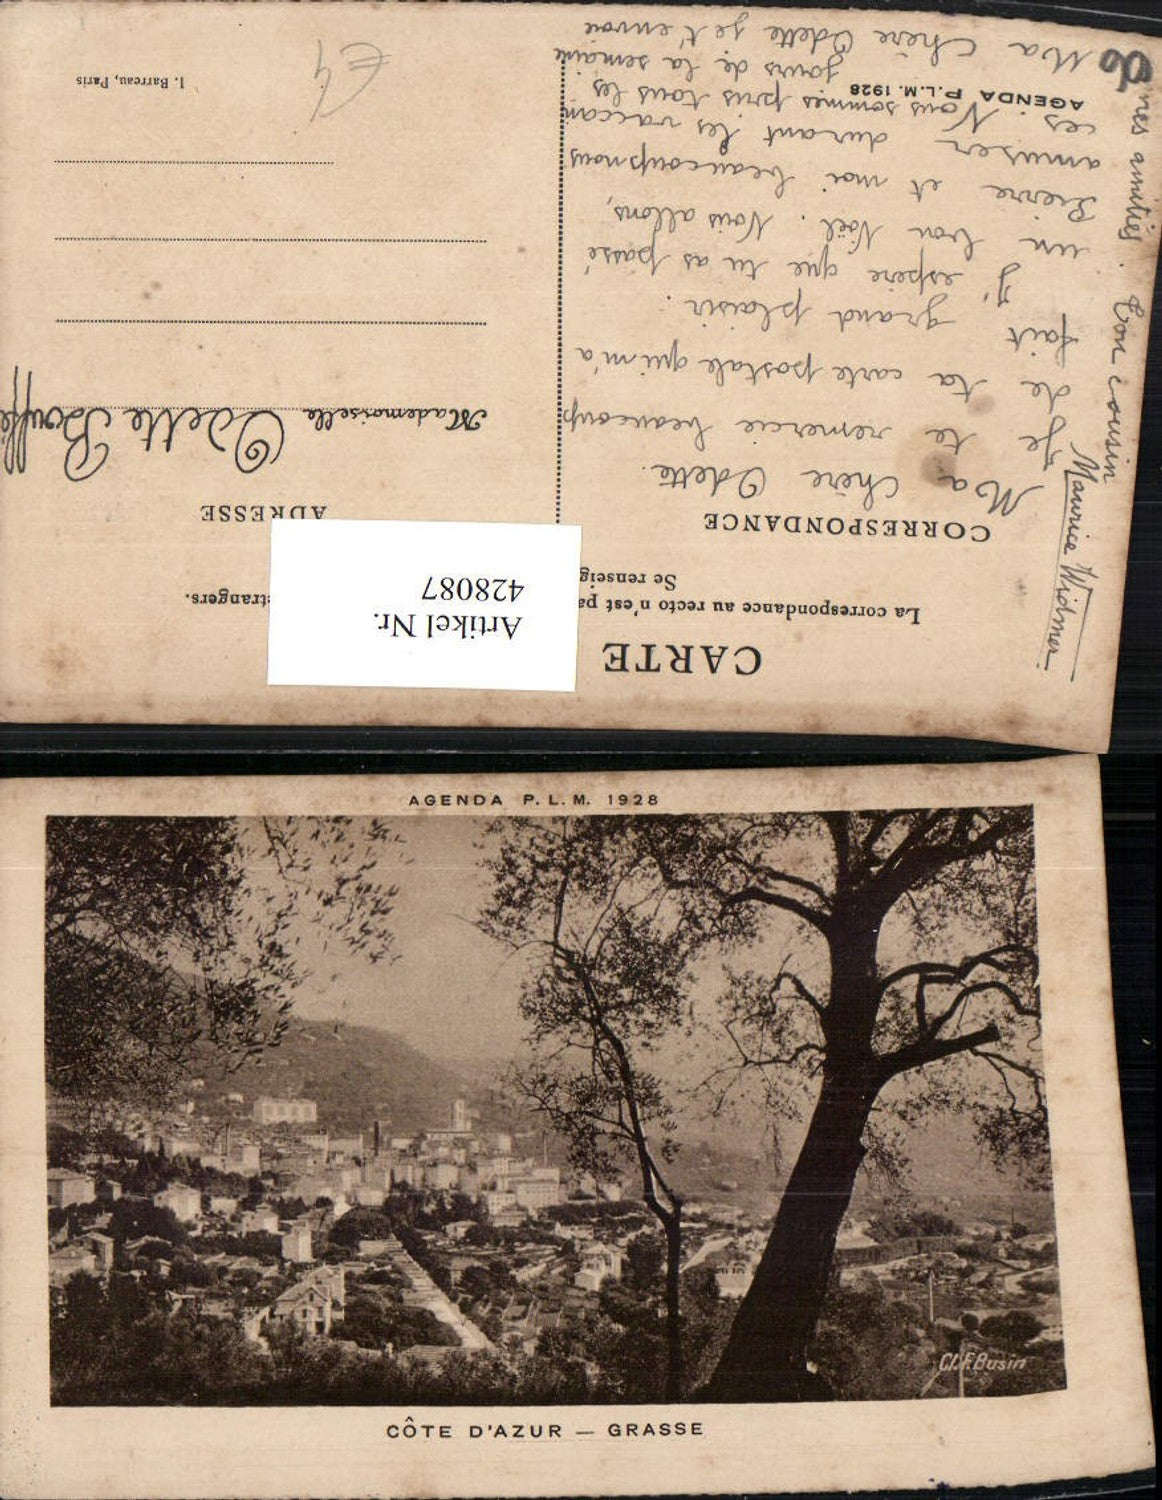 CARTE
Artikel Nr.
428087
La correspondance au recto n'est pa
etrangers.
Se renseig
CORRESPONDANCE
ADRESSE
Ma Chère Odette.
Je te remercie beaucoup
de ta carte postale qui m'a
fait grand plaisir.
J'espère que tu as passé
un bon Noël. Nous allons,
Pierre et moi beaucoup nous
amuser durant les vaccan
ces. Nous sommes pris tous les
jours de la semaine
Ma Chère Odette je t'envoie
mes amitiés. Ton cousin
Maurice Widmer
Mademoiselle Odette
AGENDA P.L.M. 1928
I. Barreau, Paris
€4
AGENDA P. L. M. 1928
Cl. F. Busin
CÔTE D'AZUR — GRASSE